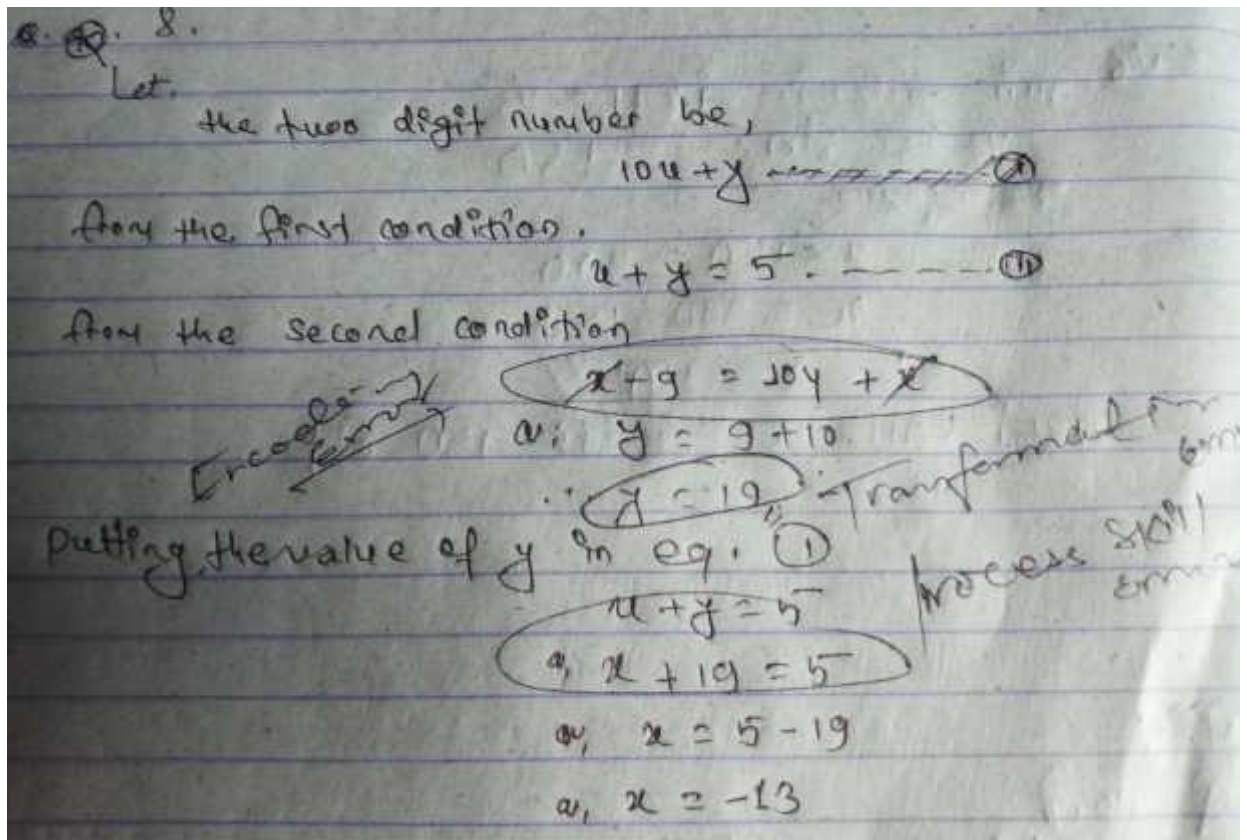 Q. 8.
Let.
the two digit number be,
10x + y
from the first condition.
x + y = 5. ----- (ii)
from the second condition
x + 9 = 10y + x
or, y = 9 + 10
∴ y = 19
Encoding error
Transformation error
Putting the value of y in eq. (1)
Process skill error
x + y = 5
or, x + 19 = 5
or, x = 5 - 19
or, x = -13